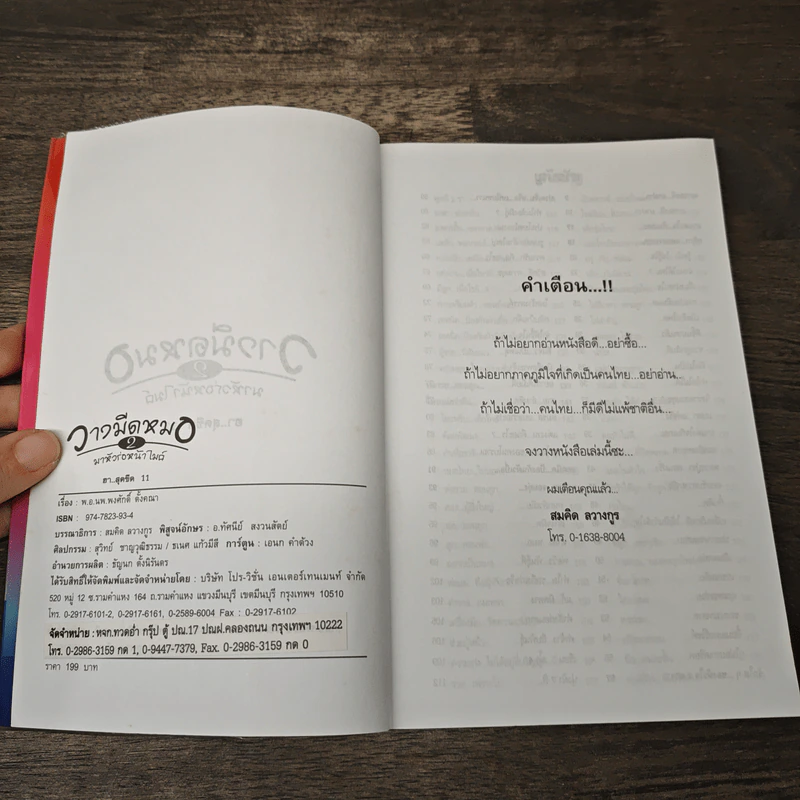 วางมีดหมอ
2
มาหัวร่อหน้าไมค์
ฮา..สุดขีด 11
เรื่อง : พ.อ.นพ.พงศักดิ์ ตั้งคณา
ISBN : 974-7823-93-4
บรรณาธิการ : สมคิด ลวางกูร พิสูจน์อักษร : อ.ทัศนีย์ สงวนสัตย์
ศิลปกรรม : สุวิทย์ ชาญวุฒิธรรม / ธเนศ แก้วมีสี การ์ตูน : เอนก คำด้วง
อำนวยการผลิต : ธัญนก ตั้งนิรันดร
ได้รับสิทธิ์ให้จัดพิมพ์และจัดจำหน่ายโดย : บริษัท โปร-วิชั่น เอนเตอร์เทนเมนท์ จำกัด
520 หมู่ 12 ซ.รามคำแหง 164 ถ.รามคำแหง แขวงมีนบุรี เขตมีนบุรี กรุงเทพฯ 10510
โทร. 0-2917-6101-2, 0-2917-6161, 0-2589-6004 Fax : 0-2917-6102
จัดจำหน่าย : หจก.ทวดย่ำ กรุ๊ป ตู้ ปณ.17 ปณฝ.คลองถนน กรุงเทพฯ 10222
โทร. 0-2986-3159 กด 1, 0-9447-7379, Fax. 0-2986-3159 กด 0
ราคา 199 บาท
คำเตือน...!!
ถ้าไม่อยากอ่านหนังสือดี...อย่าซื้อ...
ถ้าไม่อยากภาคภูมิใจที่เกิดเป็นคนไทย...อย่าอ่าน...
ถ้าไม่เชื่อว่า...คนไทย...ก็มีดีไม่แพ้ชาติอื่น...
จงวางหนังสือเล่มนี้ซะ...
ผมเตือนคุณแล้ว...
สมคิด ลวางกูร
โทร. 0-1638-8004